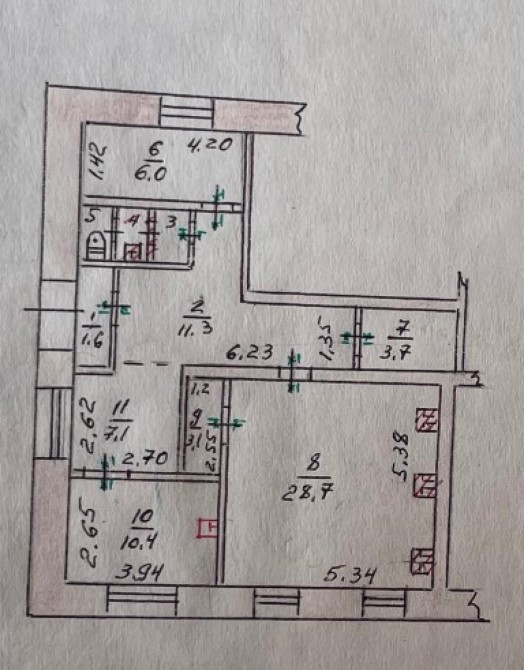 4.20
1.42
6
6.0
5
4
3
1
1.6
2
11.3
6.23
1.35
7
3.7
1.2
9
3.1
2.55
11
7.1
2.62
2.70
8
28.7
5.38
2.65
10
10.4
3.94
5.34